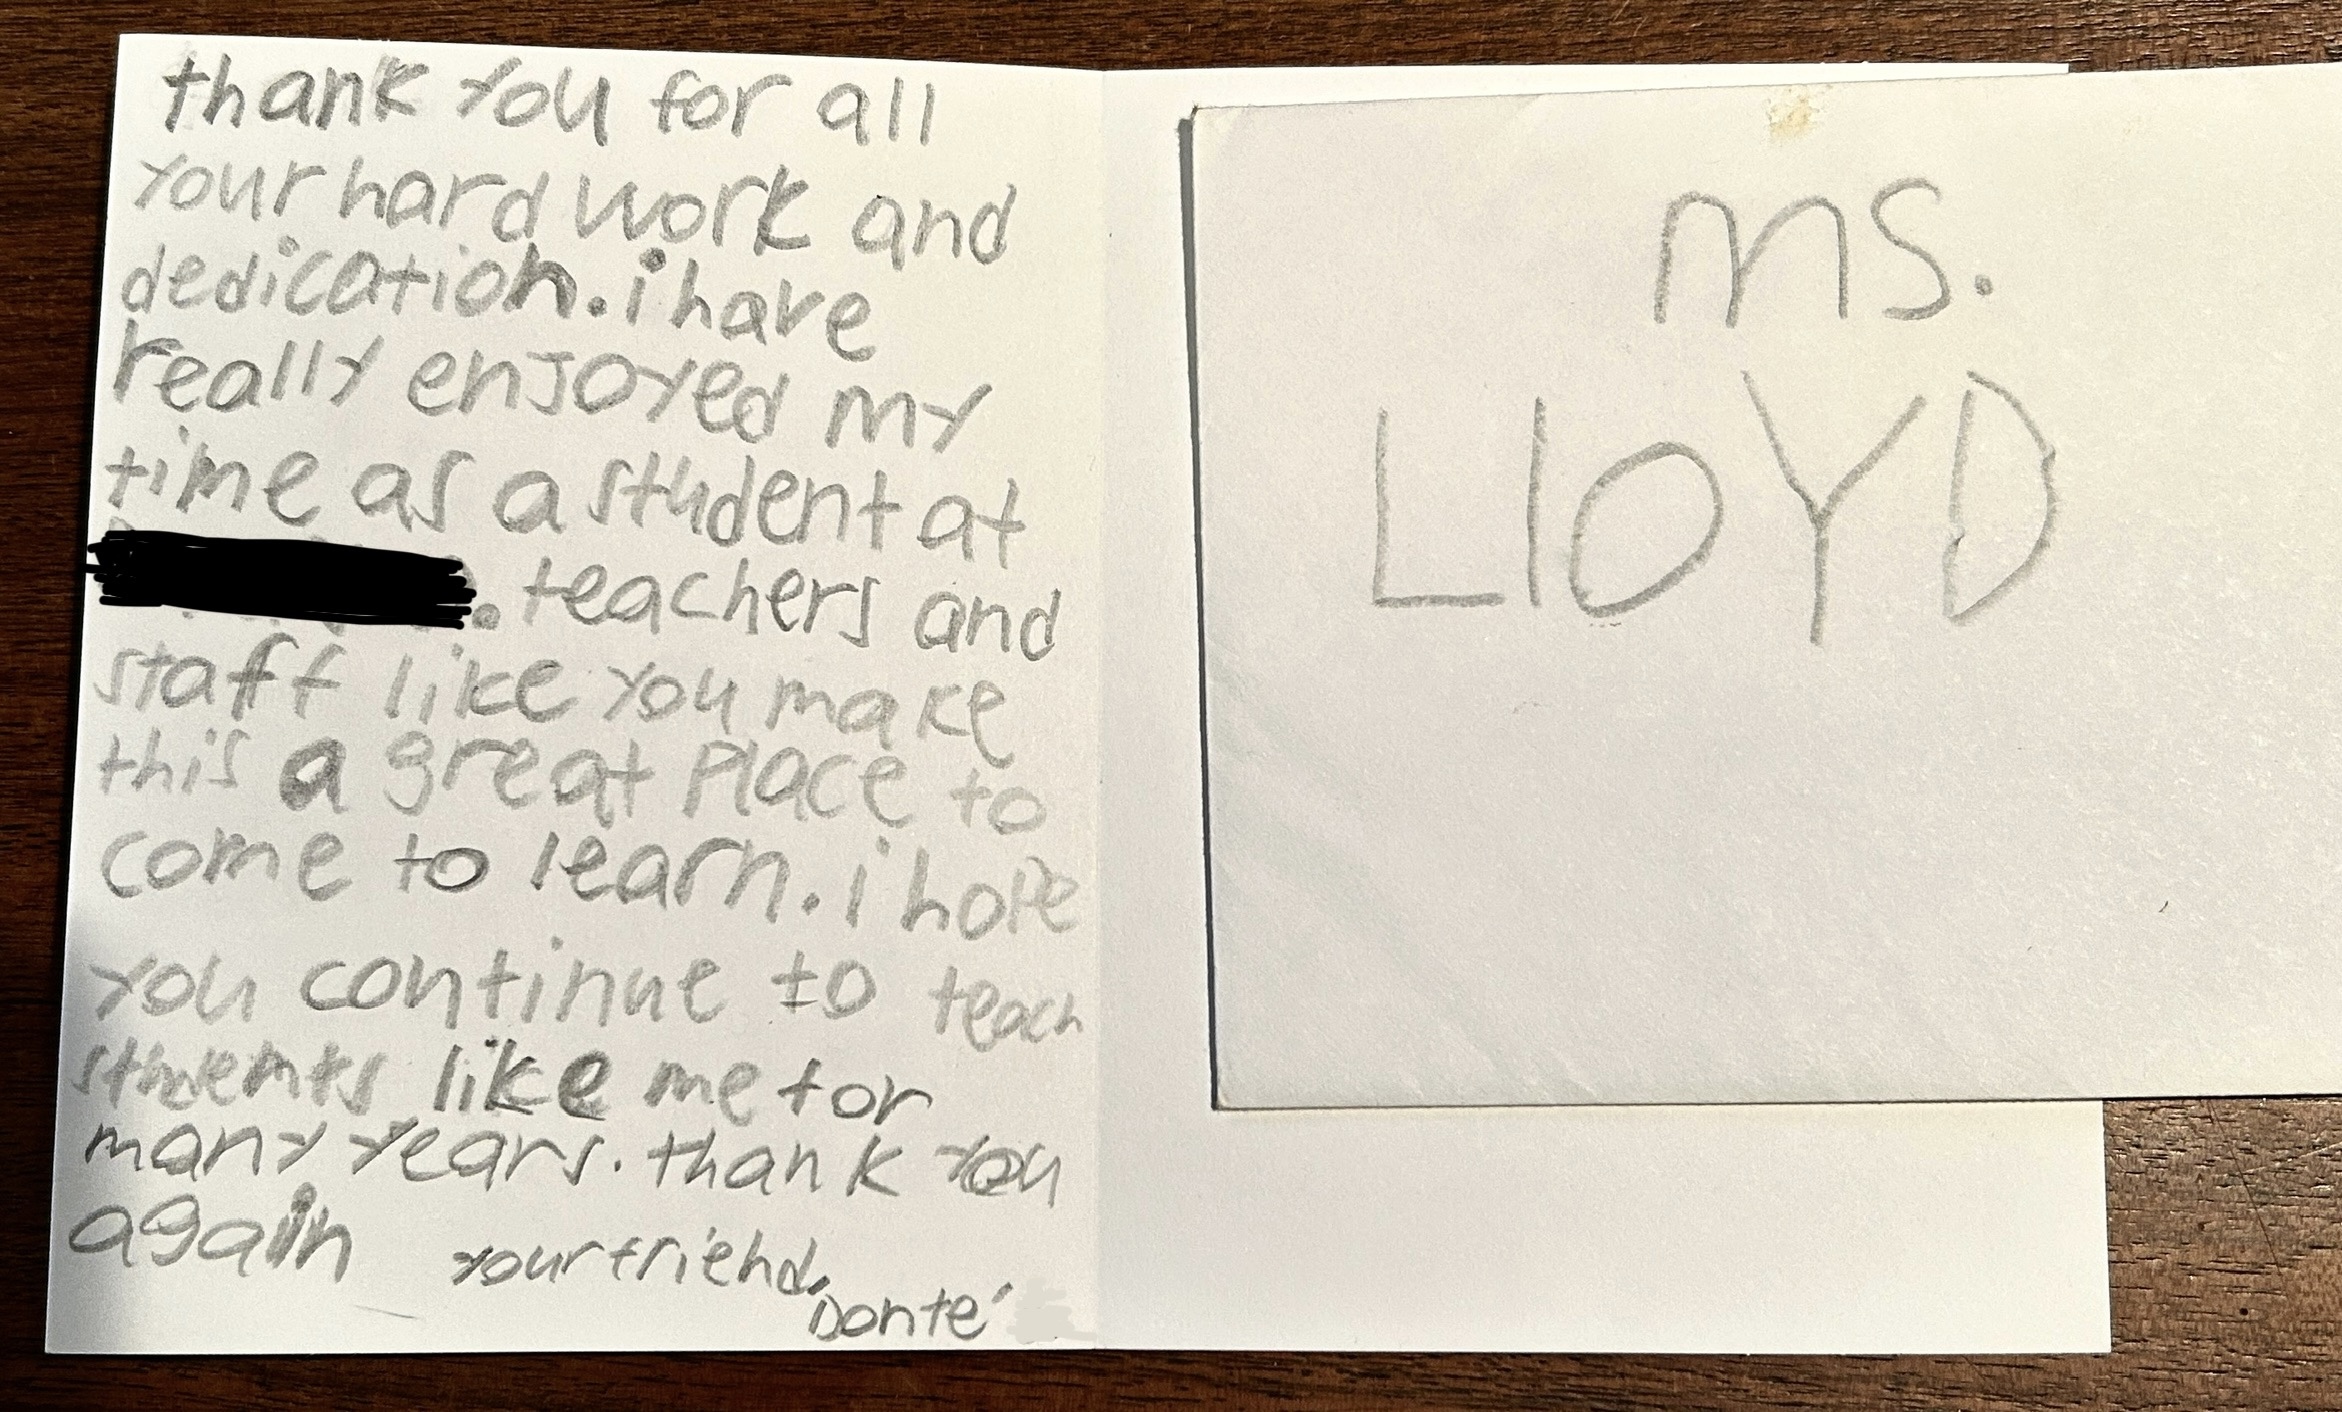 thank you for all
your hard work and
dedication. i have
really enjoyed my
time as a student at
. teachers and
staff like you make
this a great place to
come to learn. i hope
you continue to teach
students like me for
many years. thank you
again
your friend,
Donte´
ms.
LIOYD